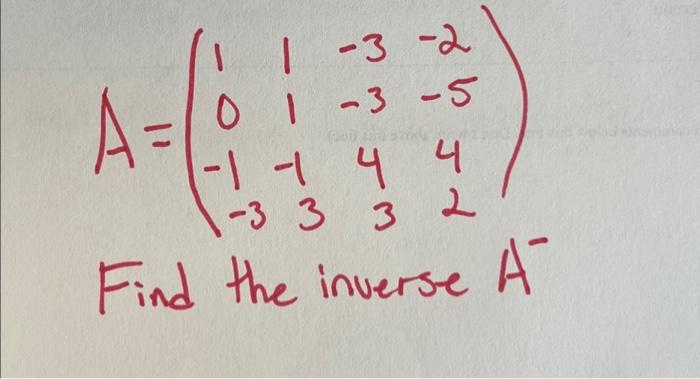 1 1 -3 -2
A= 0 1 -3 -5
-1 -1 4 4
-3 3 3 2
Find the inverse A⁻